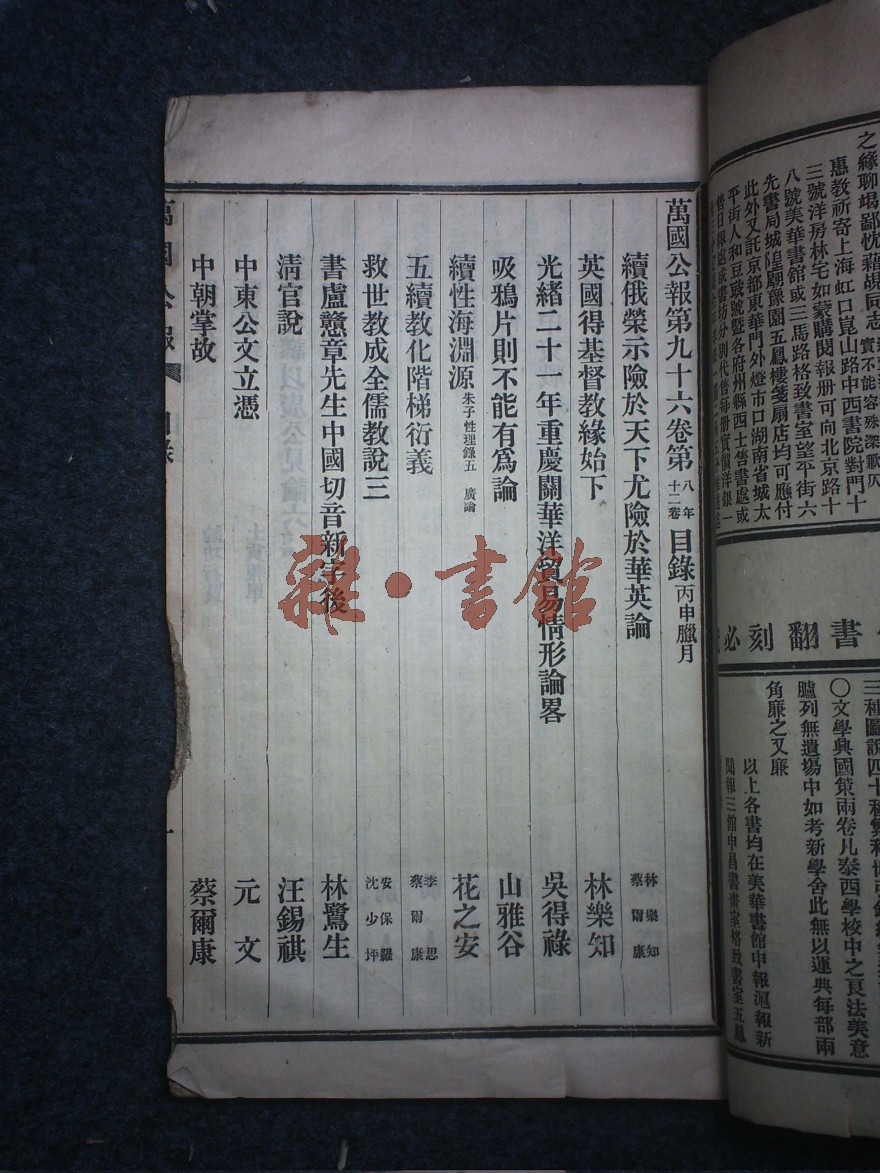 之緣聊竭鄙忱藉覘同志實不能容殊深歉仄
惠教祈寄上海虹口崑山路中西書院對門十
三號洋房林宅如蒙購閱報册可向北京路十
八號美華書館或三馬路格致書室望平街六
先書局城隍廟豫園五鳳樓箋扇店均可應付
此外又託京都東華門外燈市口湖南省城太
平街人和豆豉號暨各府州縣西士售書處或
書翻刻必
三種圖說四十種
〇文學興國策兩卷凡泰西學校中之良法美意
臚列無遺塲中如考新學舍此無以運典每部兩
角廉之又廉
以上各書均在美華書館申報滬報新
聞報三館申昌書畫室格致書室五鳳
萬國公報第九十六卷第八年十二卷目錄 丙申臘月
續俄榮示險於天下尤險於華英論 林樂知 蔡爾康
英國得基督教緣始下 林樂知
光緒二十一年重慶關華洋貿易情形論畧 吳得祿
吸鴉片則不能有爲論 山雅谷
續性海淵源 朱子性理錄五 廣論 花之安
五續教化階梯衍義 李思 蔡爾康
救世教成全儒教說三 安保羅 沈少坪
書盧戇章先生中國切音新字後 林鷺生
淸官說 汪錫祺
中東公文立憑 元文
中朝掌故 蔡爾康
萬國公報 目錄 一
雜·書館